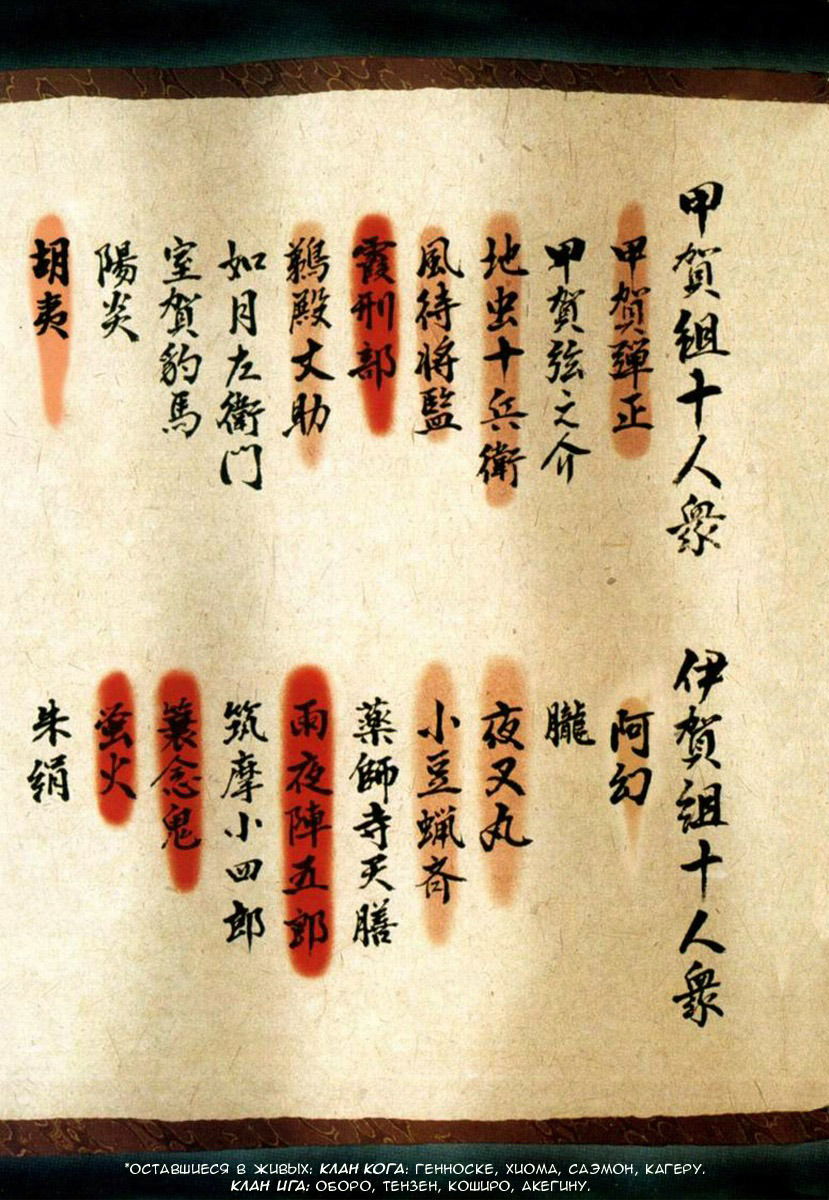 甲賀組十人衆
甲賀弾正
甲賀弦之介
地虫十兵衛
風待将監
霞刑部
鵜殿丈助
如月左衛門
室賀豹馬
陽炎
胡夷
伊賀組十人衆
阿幻
朧
夜叉丸
小豆蝋斎
薬師寺天膳
雨夜陣五郎
筑摩小四郎
蓑念鬼
蛍火
朱絹
*ОСТАВШИЕСЯ В ЖИВЫХ: КЛАН КОГА: ГЕННОСКЕ, ХИОМА, САЭМОН, КАГЕРУ.
КЛАН ИГА: ОБОРО, ТЕНЗЕН, КОШИРО, АКЕГИНУ.